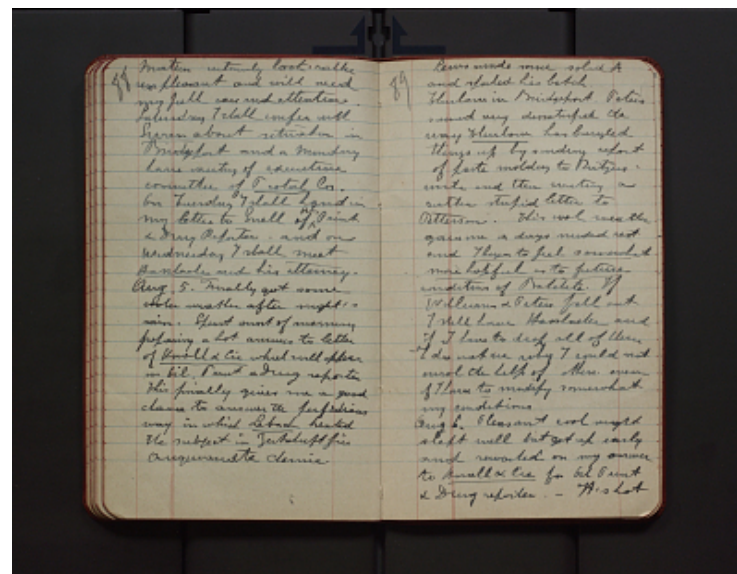 88
Masters extremely look rather
unpleasant and will need
my full care and attention.
Saturday I shall confer with
about situation in
Bridgeport and on Monday
have meeting of executive
committee of Co.
On Tuesday I shall hand in
my letter to Small of Paint
& Drug Reporter and on
Wednesday I shall meet
and his attorney.
Aug. 5. Finally got some
cooler weather after night's
rain. Spent most of morning
preparing a hot answer to letter
of & Cie which will appear
in Oil, Paint & Drug reporter
This finally gives me a good
chance to answer the perfidious
way in which Lebach treated
the subject in Zeitschrift für
angewandte chemie
89
made more solid A
and spoiled his batch
Thurlow in Bridgeport. Peters
seemed very disturbed the
way Thurlow has bungled
things up by sending report
of parts molding to
and then writing a
rather stupid letter to
Patterson. This cool weather
gave me a days needed rest
and I begin to feel somewhat
more hopeful as to future
condition of Bakelite. If
Williams & Peters fall out
I still have and
if I have to drop all of them
I do not see why I could not
enroll the help of others even
if I have to modify somewhat
my conditions.
Aug 6. Pleasant cool night
slept well but got up early
and reworked on my answer
to & Cie for Oil Paint
& Drug reporter. - A shot